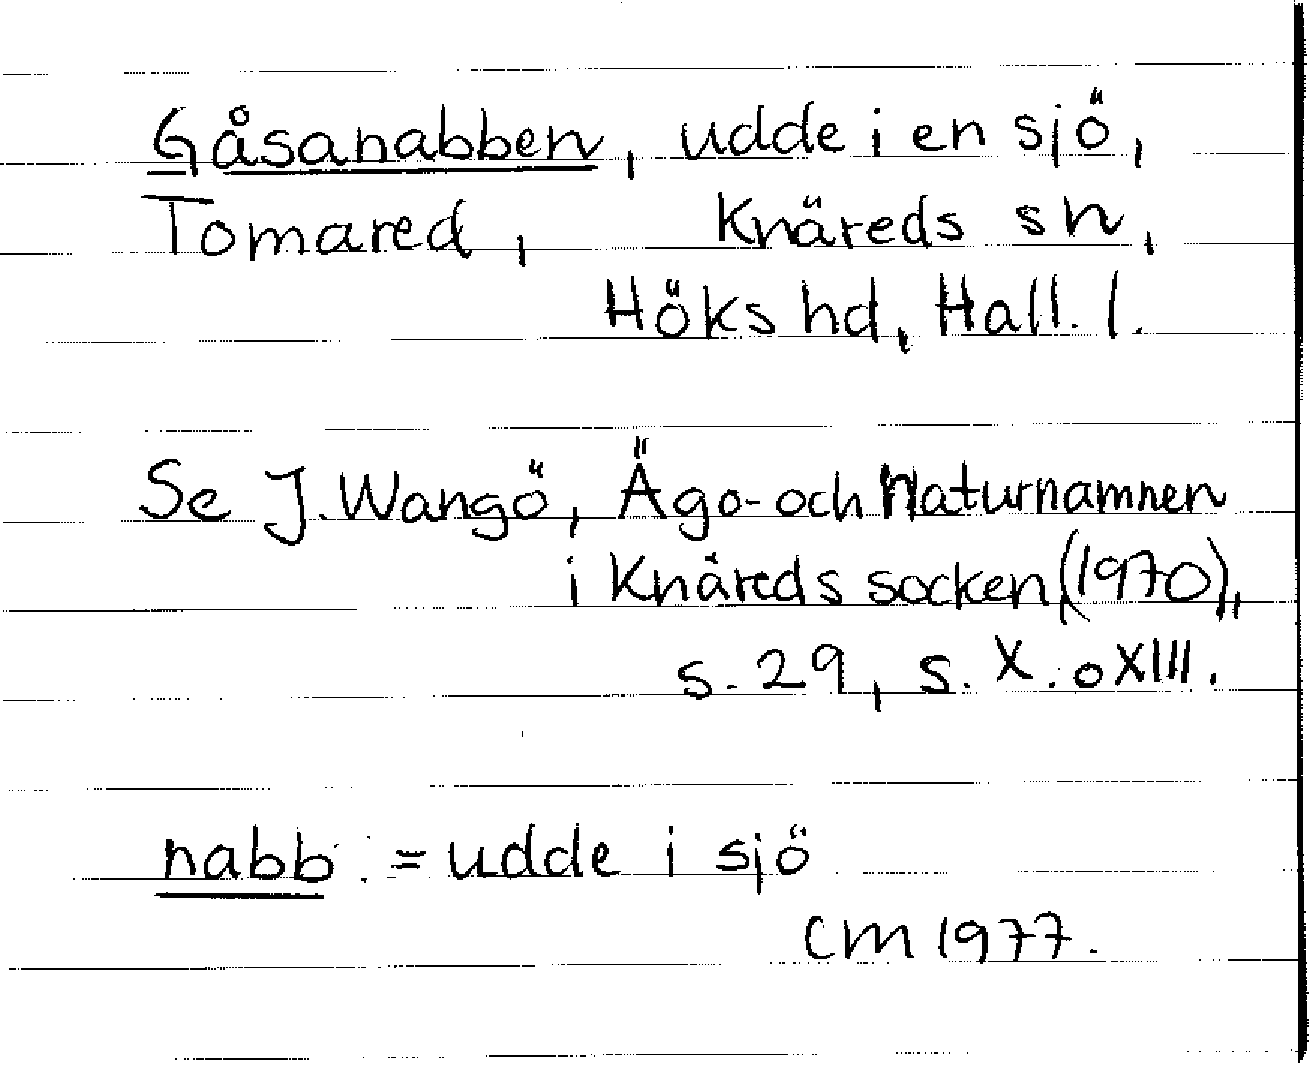 Gåsanabben, udde i en sjö,
Tomared, Knäreds sn,
Höks hd, Hall. l.
Se J. Wangö, Ägo- och Naturnamnen
i Knäreds socken (1970),
s. 29, s. X. o XIII.
nabb: = udde i sjö
CM 1977.